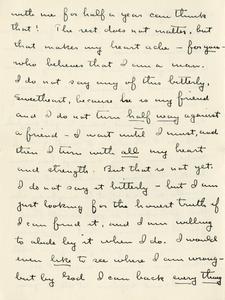 with me for half a year can think
that! The rest does not matter, but
that makes my heart ache – for you –
who believes that I am a man.
I do not say any of this bitterly,
Sweetheart, because he is my friend
and I do not turn half way against
a friend – I wait until I must, and
then I turn with all my heart
and strength. But that is not yet.
I do not say it bitterly – but I am
just looking for the honest truth if
I can find it, and I am willing
to abide by it when I do. I would
even like to see where I am wrong –
but by God I can back every thing